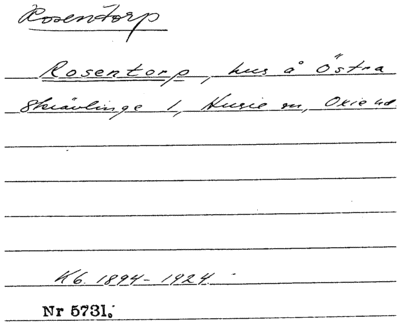 Rosentorp
Rosentorp, hus å Östra
Skrävlinge 1, Husie sn, Oxie hd
Kb. 1894-1924
Nr 5731.